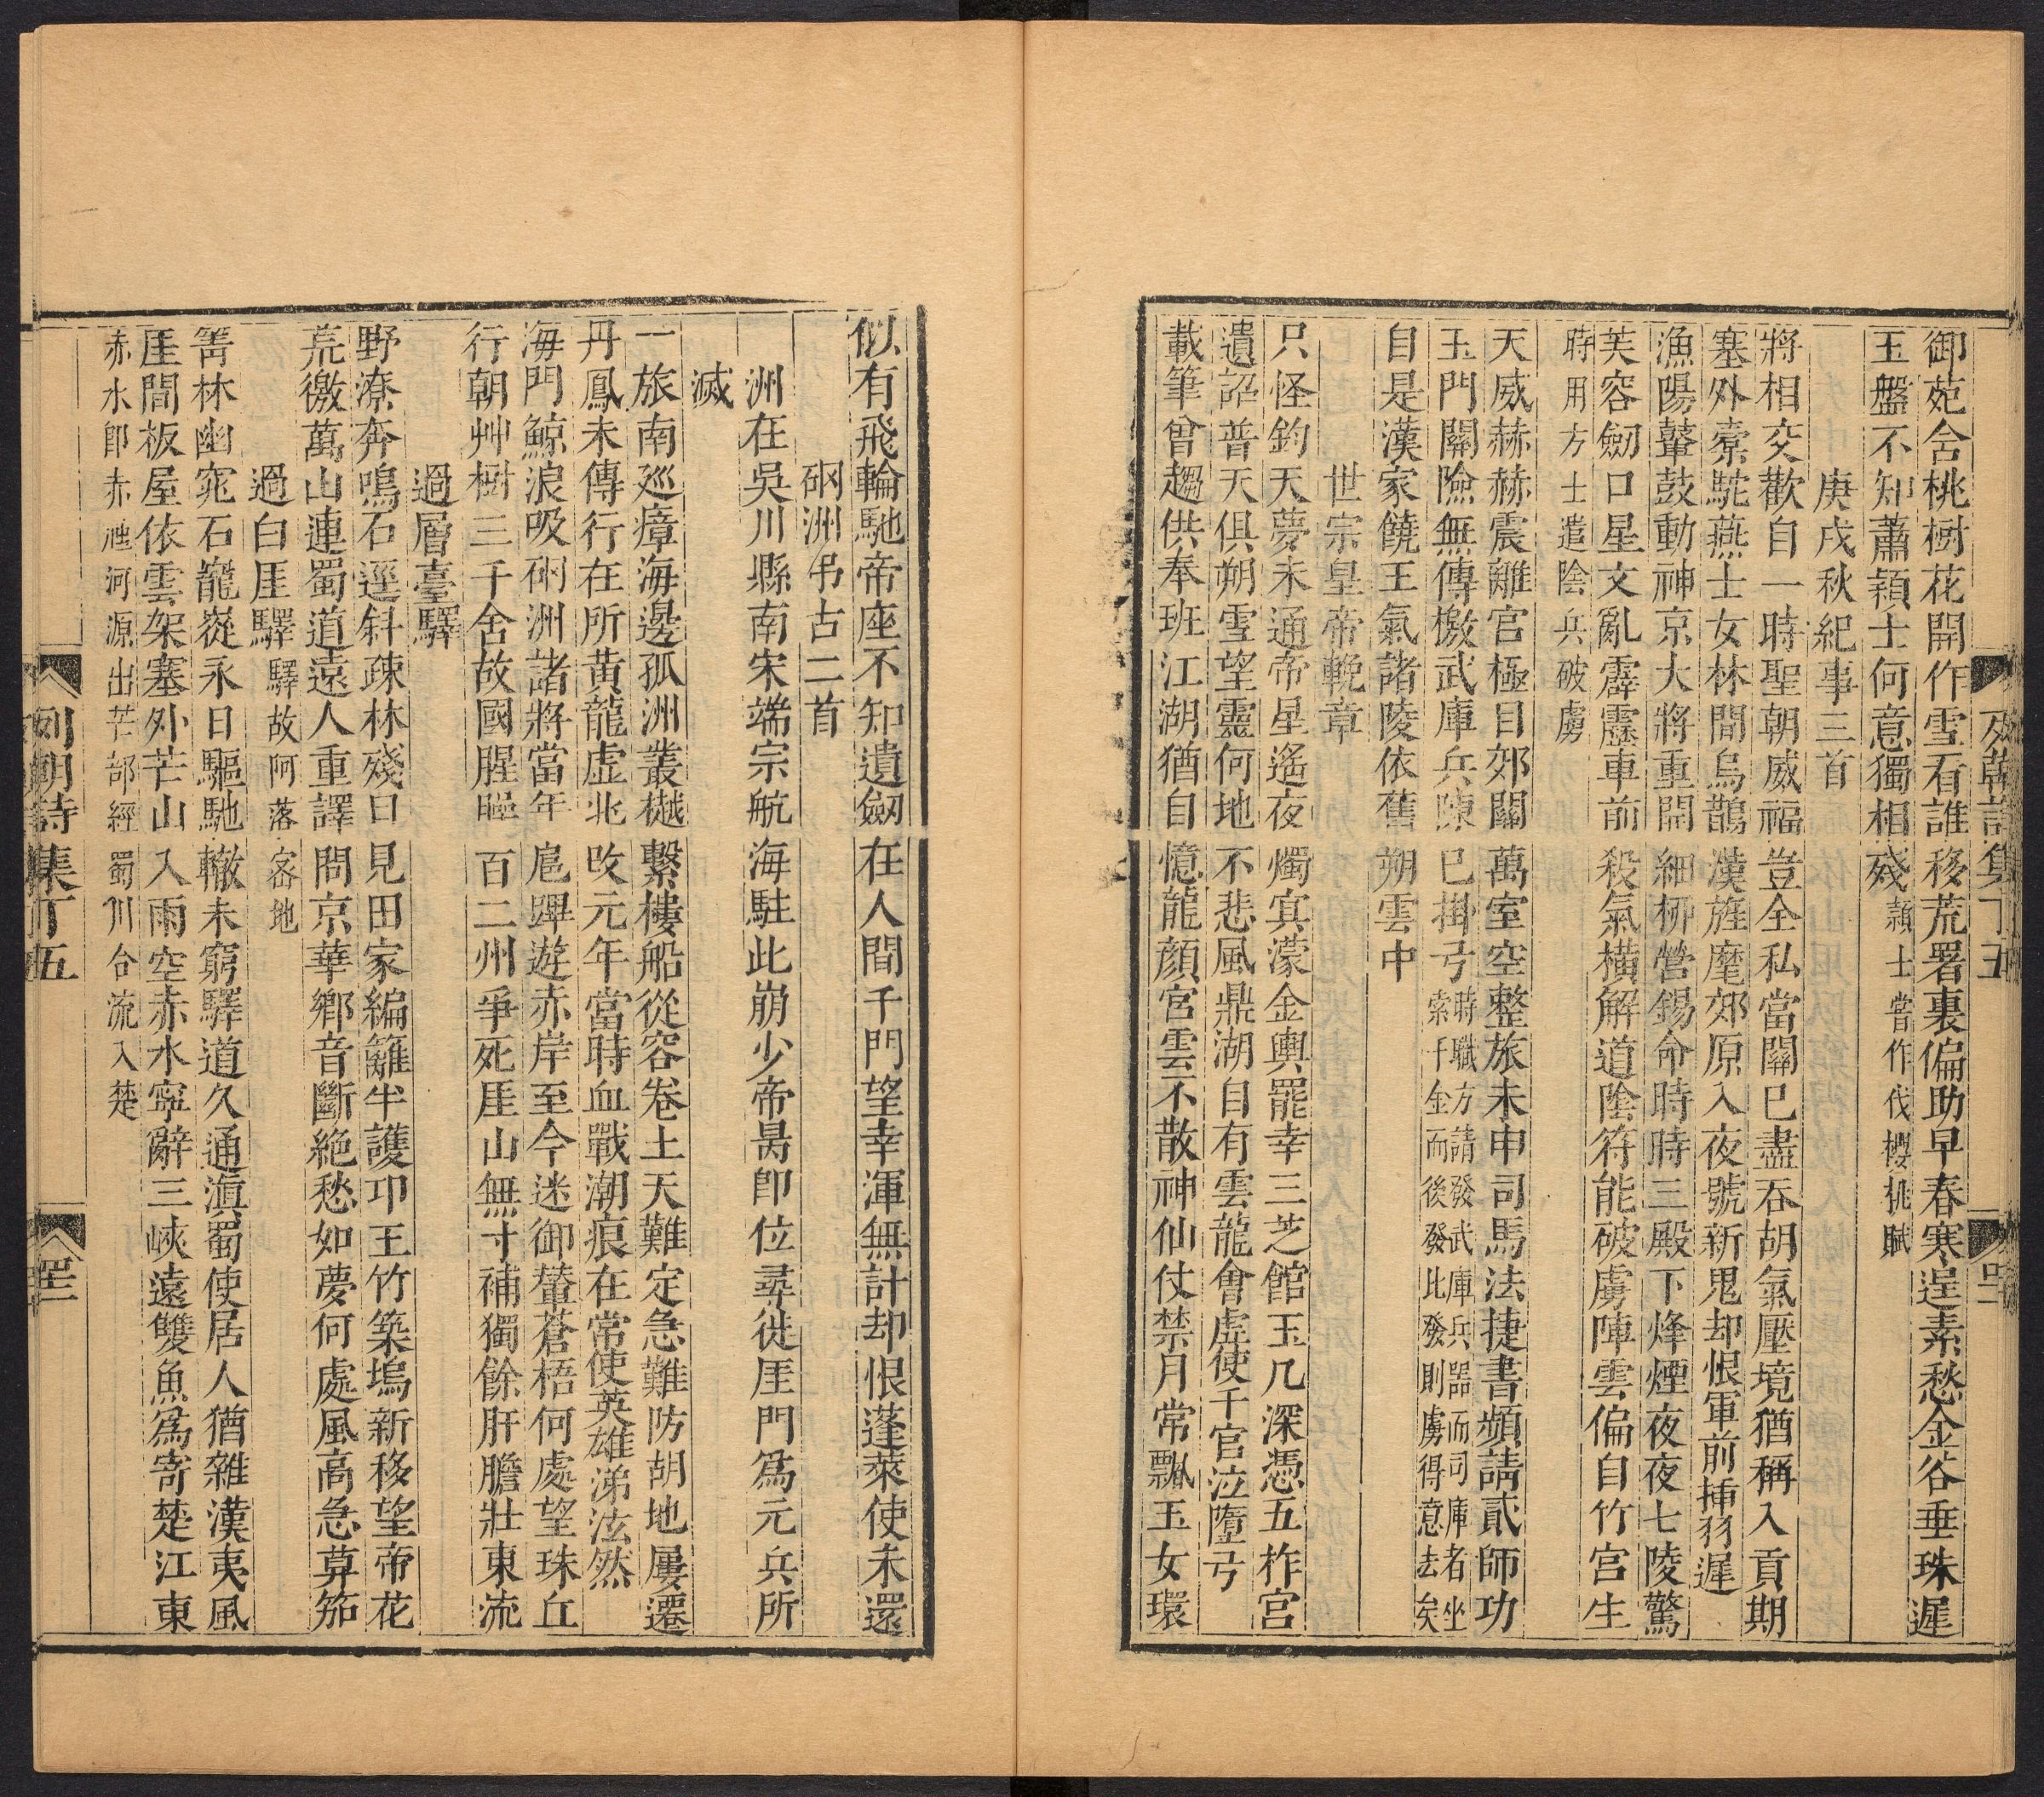 列朝詩集丁五
御苑含桃樹花開作雪看誰移荒署裏偏助早春寒逞素愁金谷垂珠遲
玉盤不知蕭穎士何意獨相殘穎士嘗作伐櫻桃賦
庚戌秋紀事三首
將相交歡自一時聖朝威福豈全私當關已盡吞胡氣壓境猶稱入貢期
塞外橐駝燕士女林間烏鵲漢旌麾郊原入夜號新鬼却恨軍前揷羽遲
漁陽鼙鼓動神京大將重開細柳營錫命時時三殿下烽煙夜夜七陵驚
芙容劒口星文亂霹靂車前殺氣橫解道陰符能破虜陣雲偏自竹宮生
時用方士遣陰兵破虜
天威赫赫震離宮極目郊關萬室空整旅未申司馬法捷書頻請貳師功
玉門關險無傳檄武庫兵陳已掛弓時職方請發武庫兵器而司庫者坐索千金而後發比發則虜得意去矣
自是漢家饒王氣諸陵依舊朔雲中
世宗皇帝輓章
只怪鈞天夢未通帝星遙夜燭寘濛金輿罷幸三芝館玉几深憑五柞宮
遺詔普天俱朔雪望靈何地不悲風鼎湖自有雲龍會虛使千官泣墮弓
載筆曾趨供奉班江湖猶自憶龍顏宮雲不散神仙仗禁月常飄玉女環
似有飛輪馳帝座不知遺劒在人間千門望幸渾無計却恨蓬萊使未還
硇洲弔古二首
洲在吳川縣南宋端宗航海駐此崩少帝昺即位尋徙厓門爲元兵所
滅
一旅南廵瘴海邊孤洲叢樾繫樓船從容卷土天難定急難防胡地屢遷
丹鳳未傳行在所黃龍虛兆改元年當時血戰潮痕在常使英雄涕泫然
海門鯨浪吸硇洲諸將當年扈蹕遊赤岸至今迷御輦蒼梧何處望珠丘
行朝艸樹三千舍故國腥百二州爭死厓山無寸補獨餘肝膽壯東流
過層臺驛
野潦奔鳴石逕斜疎林殘日見田家編籬半護邛王竹築塢新移望帝花
荒徼萬山連蜀道遠人重譯問京華鄉音斷絶愁如夢何處風高急暮笳
過白厓驛驛故阿落密地
箐林幽窕石巃嵸永日驅馳轍未窮驛道久通滇蜀使居人猶雜漢夷風
厓間板屋依雲架塞外芒山入雨空赤水寧辭三峽遠雙魚爲寄楚江東
赤水卽赤虺河源出芒部經蜀川合流入楚
列朝詩集丁五